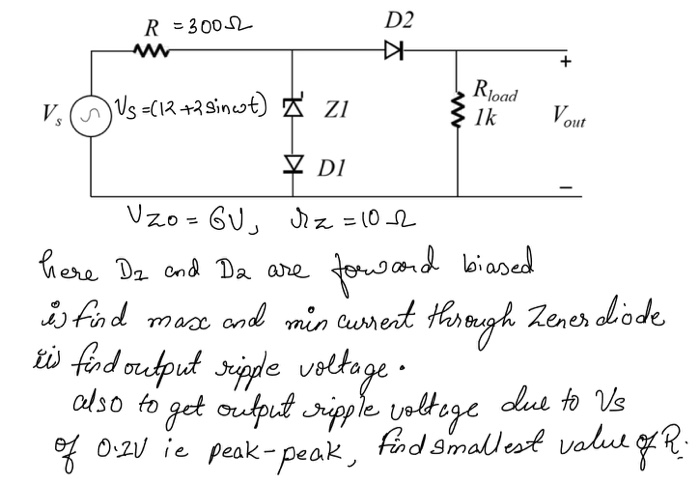 R = 300Ω
D2
Vs
Vs =(12 +2 sinωt)
Z1
Rload
1k
+
Vout
D1
−
VZO = 6V, rz = 10 Ω
here D1 and D2 are forward biased
i) find max and min current through Zener diode
ii) find output ripple voltage.
also to get output ripple voltage due to Vs
of 0.2V ie peak-peak, find smallest value of R.